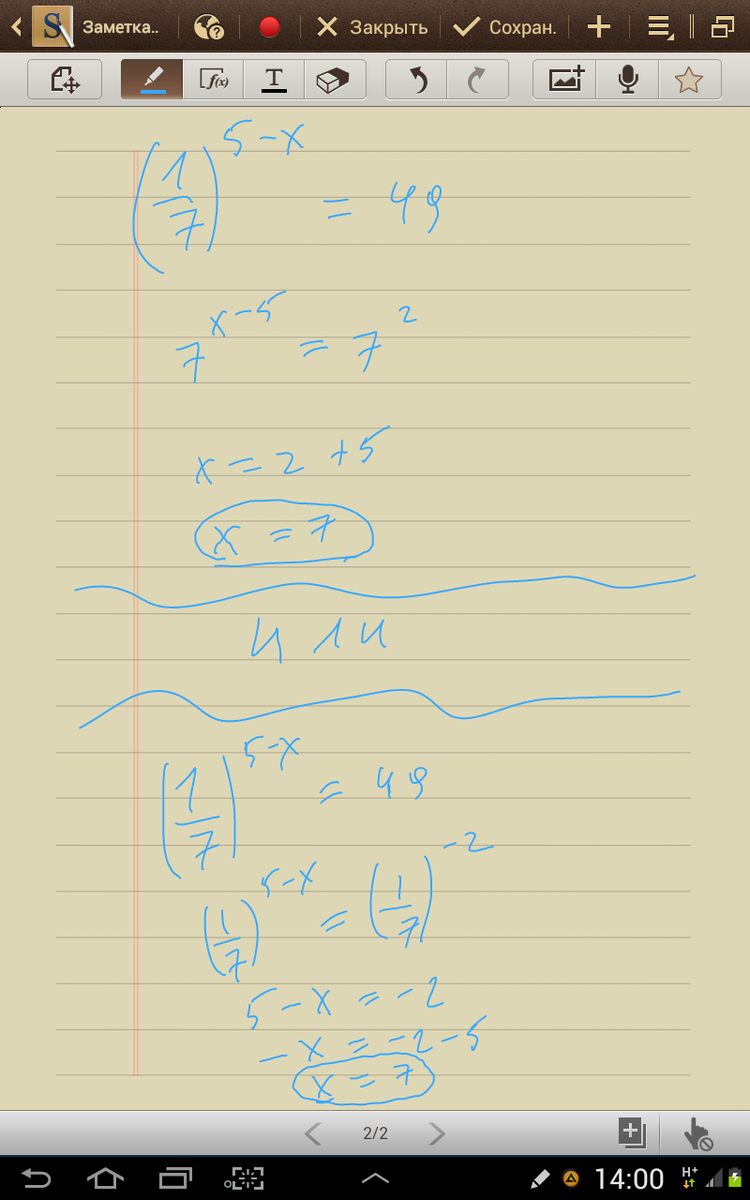 Заметка.. Закрыть Сохран.
f(x) T
(1/7)^(5-x) = 49
7^(x-5) = 7^2
x = 2 + 5
x = 7
или
(1/7)^(5-x) = 49
(1/7)^(5-x) = (1/7)^(-2)
5 - x = -2
-x = -2 - 5
x = 7
2/2
14:00 H+